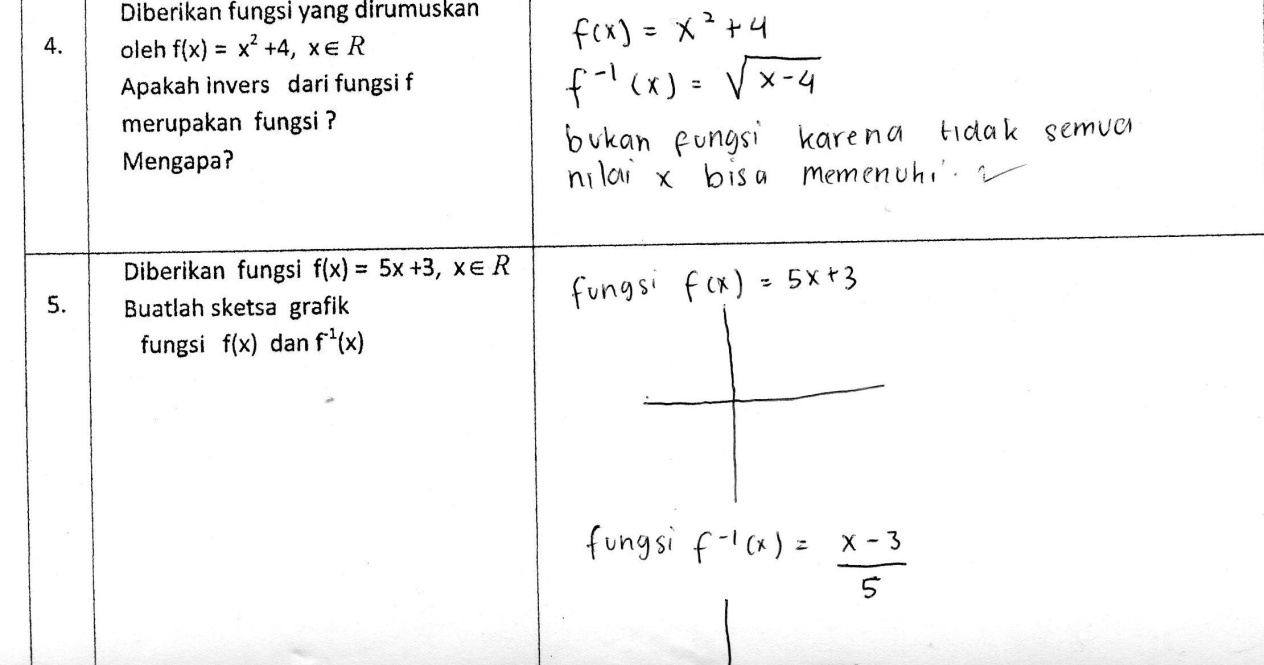 4.
Diberikan fungsi yang dirumuskan
oleh f(x) = x² +4, x∈ R
Apakah invers dari fungsi f
merupakan fungsi ?
Mengapa?
f(x) = x² + 4
f⁻¹ (x) = √x-4
bukan fungsi karena tidak semua
nilai x bisa memenuhi.
5.
Diberikan fungsi f(x) = 5x +3, x∈ R
Buatlah sketsa grafik
fungsi f(x) dan f⁻¹(x)
fungsi f(x) = 5x+3
fungsi f⁻¹(x) = x - 3
5